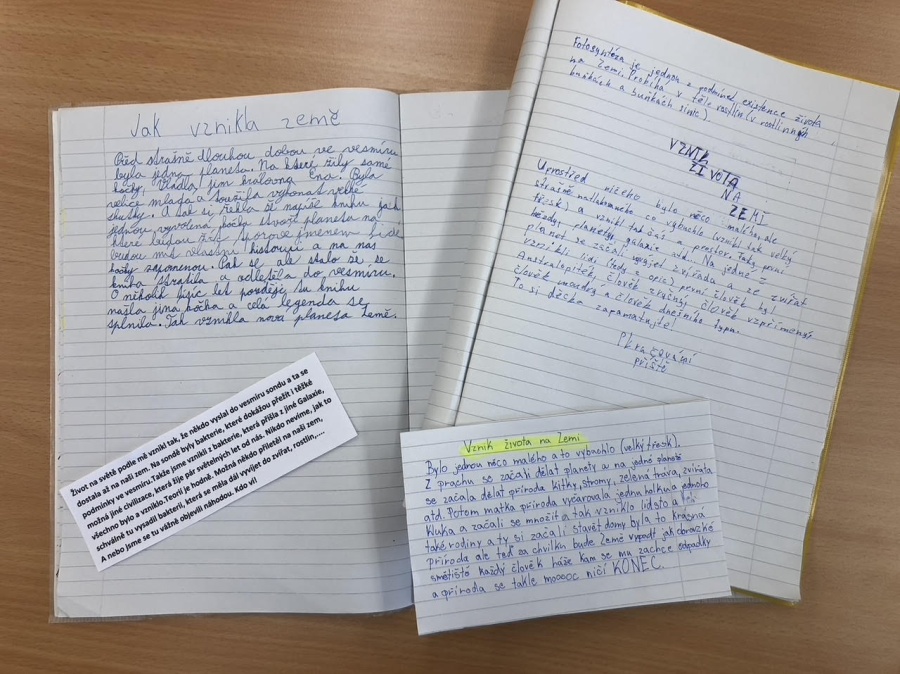 Jak vznikla země
Před strašně dlouhou dobou ve vesmíru
byla jedna planeta. Na které žily samé
kočky, vládla jim královna Ena. Byla
velice mladá a toužila vykonat velké
skutky. A tak si řekla že napíše knihu jak
jednou vyvolená kočky stvoří planetu na
které budou žít tvorové jménem lidé
budou mít vlastní historii a na nás
kočky zapomenou. Pak se ale stalo že se
kniha ztratila a odletěla do vesmíru.
O několik tisíc let později tu knihu
našla jiná kočka a celá legenda se
splnila. Tak vznikla nová planeta Země.
Život na světě podle mě vznikl tak, že někdo vyslal do vesmíru sondu a ta se
dostala až na naši zem. Na sondě byly bakterie, které dokážou přežít i těžké
podmínky ve vesmíru. Takže jsme vznikli z bakterie, která přišla z jiné Galaxie,
možná jiné civilizace, která žije pár světelných let od nás. Nikdo nevíme, jak to
všechno bylo a vzniklo. Teorií je hodně. Možná někdo přiletěl na naši zem,
schválně tu vysadil bakterii, která se měla dál vyvíjet do zvířat, rostlin,....
A nebo jsme se tu vážně objevili náhodou. Kdo ví!
Fotosyntéza je jednou z podmínek existence života
na Zemi. Probíhá v těle rostlin (v rostlinných
buňkách a buňkách sinic)
VZNIK
ŽIVOTA
NA
ZEMI
Uprostřed ničeho bylo něco maličké, ale
strašně nadupaného co vybuchlo (vznikl tak velký
třesk) a vznikl tak čas a prostor. Taky první
hvězdy, planety, galaxie atd. Na jedné z
planet se začali vyvíjet zvířáda a ze zvířat
vznikli lidi (tedy z opic) první člověk byl
Australopiték, člověk zručný, člověk vzpřímený
člověk moudrý a člověk dnešního typu.
To si děcka zapamatujte!
Pokračování
příště
Vznik života na Zemi
Bylo jednou něco malého a to vybuchlo (velký třesk).
Z prachu se začali dělat planety a na jedné planetě
se začala dělat příroda kitky, stromy, zelená tráva, zvířata
atd. Potom matka příroda vyčarovala jednu holku a jednoho
kluka a začali se množit a tak vzniklo lidstvo a
také rodiny a ty si začali stavět domy byla to krásná
příroda ale teď za chvilku bude Země vypadt jak obrazké
smětiště každý člověk háže kam se mu zachce odpadky
a příroda se takle moooc ničí KONEC.